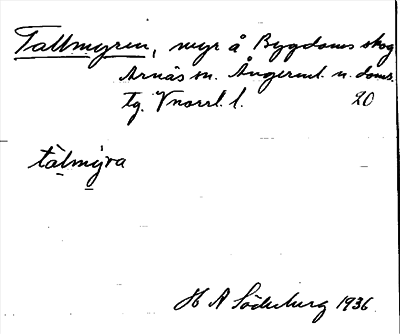 Tallmyren, myr å Bygdoms skog
Arnäs sn. Ångerml. n. doms.
tg. Vnorrl. l. 20
tàlmýra
H A Söderburg 1936